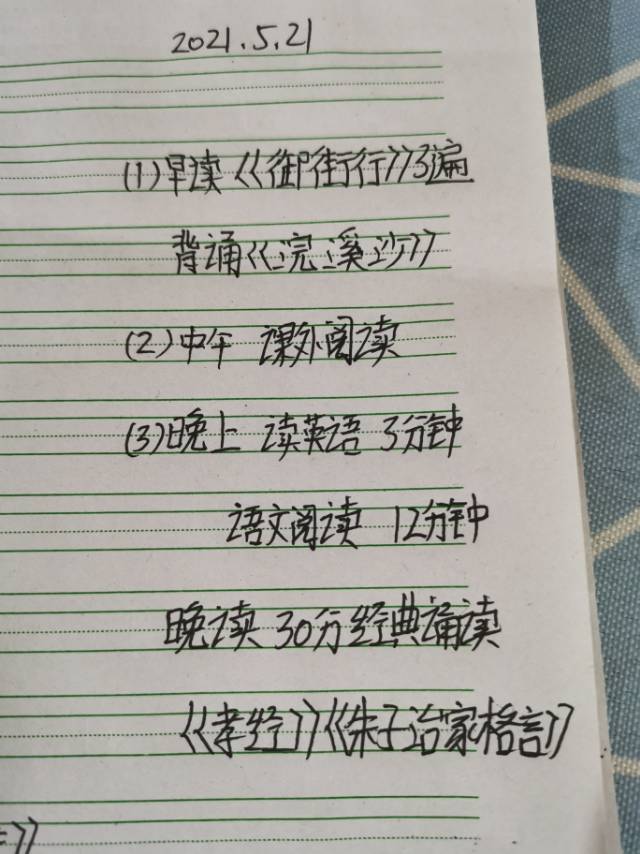 2021.5.21
(1)早读《御街行》3遍
背诵《浣溪沙》
(2)中午 课外阅读
(3)晚上 读英语 3分钟
语文阅读 12分钟
晚读 30分经典诵读
《孝经》《朱子治家格言》
》